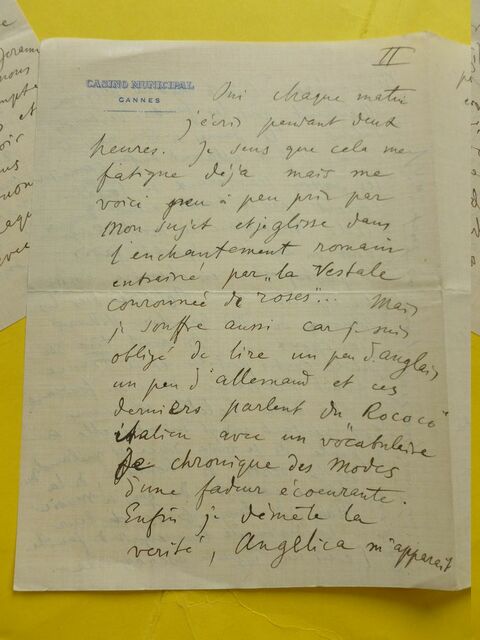 II
CASINO MUNICIPAL
CANNES
Oui chaque matin
j'écris pendant deux
heures. Je sens que cela me
fatigue déjà mais me
voici peu à peu pris par
mon sujet et je glisse dans
l'enchantement romain
entrainé par "la Vestale
couronnée de roses"... Mais
je souffre aussi car je suis
obligé de lire un peu d'anglais
un peu d'allemand et ces
derniers parlent du Rococo
italien avec un vocabulaire
de chronique des Modes
d'une fadeur écoeurante.
Enfin je démêle la
verité, Angelica m'apparait